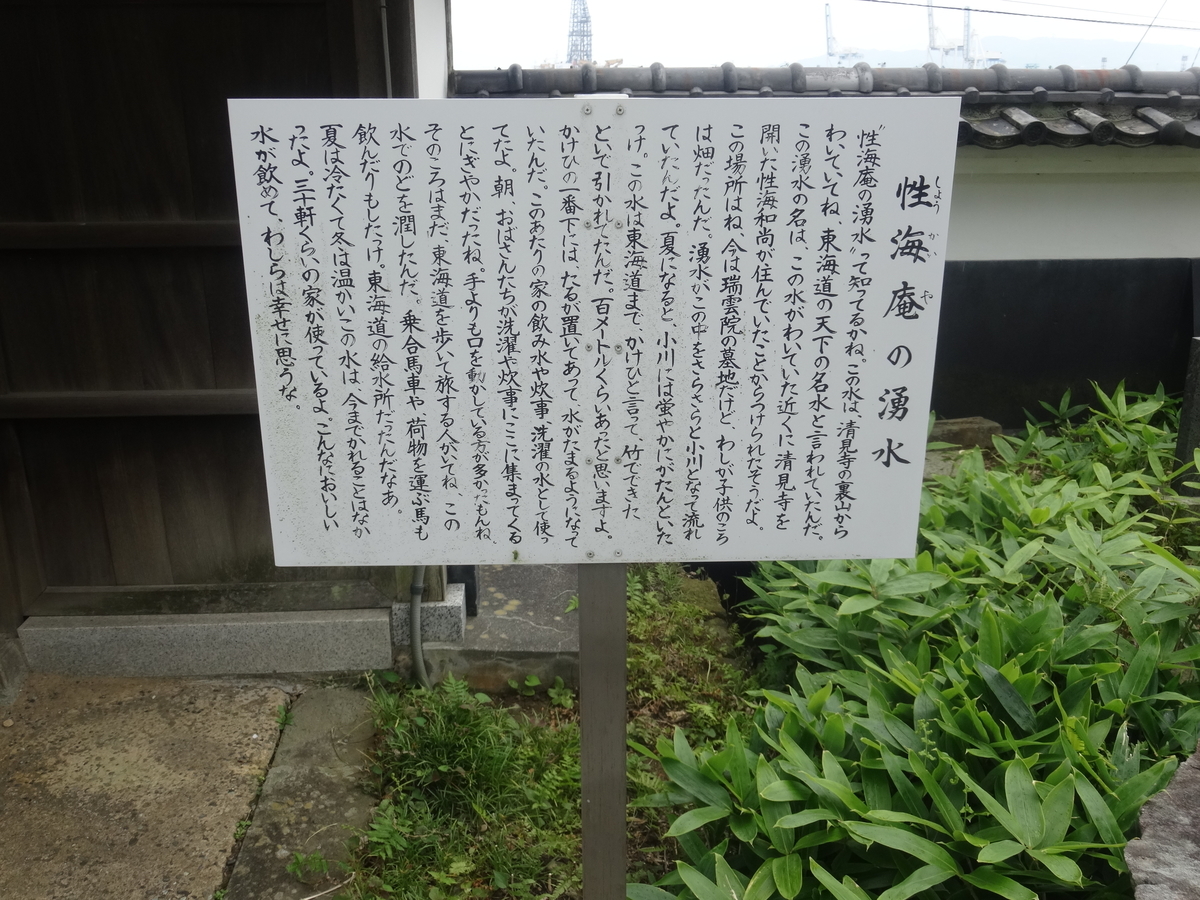 性海庵の湧水
しょう かい や
"性海庵の湧水"って知ってるかね。この水は、清見寺の裏山から
わいていてね、東海道の天下の名水と言われていたんだ。
この湧水の名は、この水がわいていた近くに清見寺を
開いた性海和尚が住んでいたことからつけられたそうだよ。
この場所はね、今は瑞雲院の墓地だけど、わしが子供のころ
は畑だったんだ。湧水がこの中をさらさらっと小川となって流れ
ていたんだよ。夏になると、小川には蛍やかにがたんといた
っけ。この水は東海道まで、かけひと言って、竹でできた
といで引かれてたんだ。百メートルくらいあったと思いますよ。
かけひの一番下には、たるが置いてあって、水がたまるようになって
いたんだ。このあたりの家の飲み水や炊事、洗濯の水として使っ
てたよ。朝、おばさんたちが洗濯や炊事にここに集まってくる
とにぎやかだったね。手よりも口を動かしている方が多かったもんね、
そのころはまだ、東海道を歩いて旅する人がいてね、この
水でのどを潤したんだ。乗合馬車や、荷物を運ぶ馬も
飲んだりもしたっけ。東海道の給水所だったんだなあ。
夏は冷たくて冬は温かいこの水は、今までかれることはなか
ったよ。三十軒くらいの家が使っているよ、こんなにおいしい
水が飲めて、わしらは幸せに思うな。